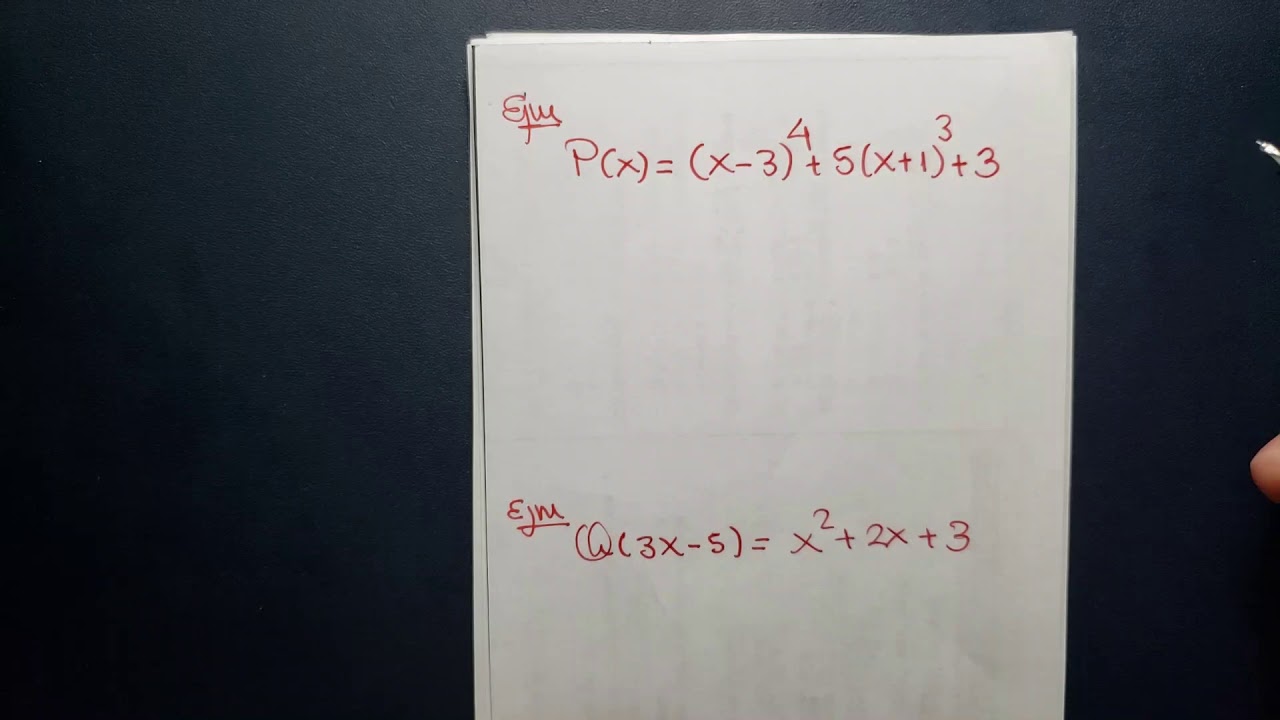 Ejm
P(x) = (x-3)⁴ + 5(x+1)³ + 3
Ejm
Q(3x-5) = x² + 2x + 3